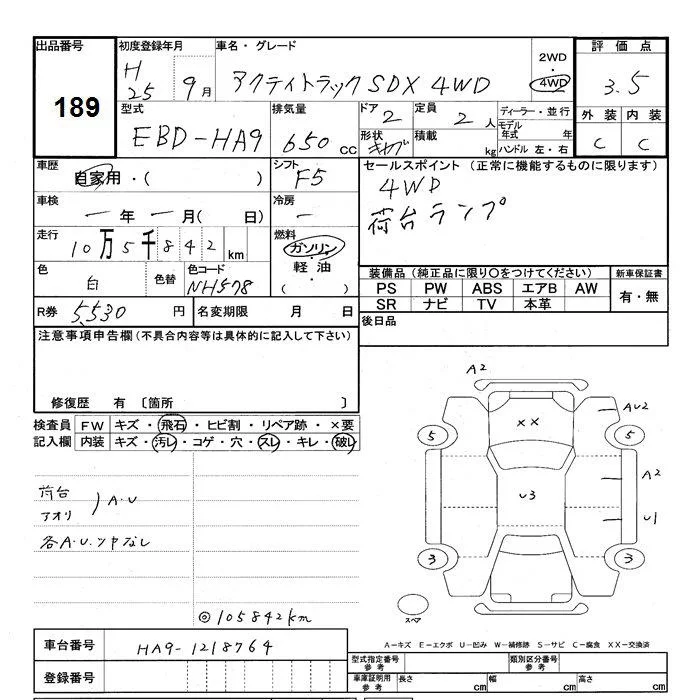 出品番号 初度登録年月 車名・グレード 2WD・4WD 評価点
189 H25 9月 アクティトラックSDX 4WD 3.5
型式 排気量 ドア 定員 ディーラー・並行 外装 内装
EBD-HA9 650cc 2 2人 モデル年式 年 C C
形状 キャブ 積載 kg ハンドル 左・右
車歴 自家用・( ) シフト F5 セールスポイント (正常に機能するものに限ります)
4WD
荷台ランプ
車検 一年一月( 日) 冷房 一
走行 10万5千842km 燃料 ガソリン・軽油・( )
色 白 色替 色コード NH578
装備品 (純正品に限り○をつけてください) 新車保証書
PS PW ABS エアB AW 有・無
SR ナビ TV 本革
R券 5,530円 名変期限 月 日 後日品
注意事項申告欄 (不具合内容等は具体的に記入して下さい)
修復歴 有 〔箇所 〕
検査員記入欄 FW キズ・飛石・ヒビ割・リペア跡・×要
内装 キズ・汚レ・コゲ・穴・スレ・キレ・破レ
荷台
アオリ ) A・U
各A・U、ツヤなし
◎105842km
A2
XX
AU2
5 5
A2
U3
U1
3 3
スペア
A-キズ E-エクボ U-凹み W-補修跡 S-サビ C-腐食 XX-交換済
車台番号 HA9-1218764
登録番号
型式指定番号 参考 類別区分番号 参考
車庫証明用 参考 長さ cm 幅 cm 高さ cm